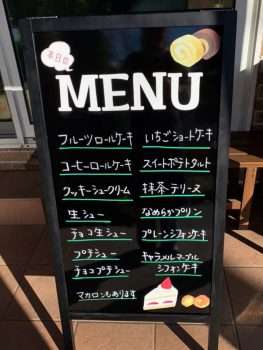 本日の
MENU
フルーツロールケーキ
コーヒーロールケーキ
クッキーシュークリーム
生シュー
チョコ生シュー
プチシュー
チョコプチシュー
マカロンもあります
いちごショートケーキ
スイートポテトタルト
抹茶テリーヌ
なめらかプリン
プレーンシフォンケーキ
キャラメルマーブル
シフォンケーキ